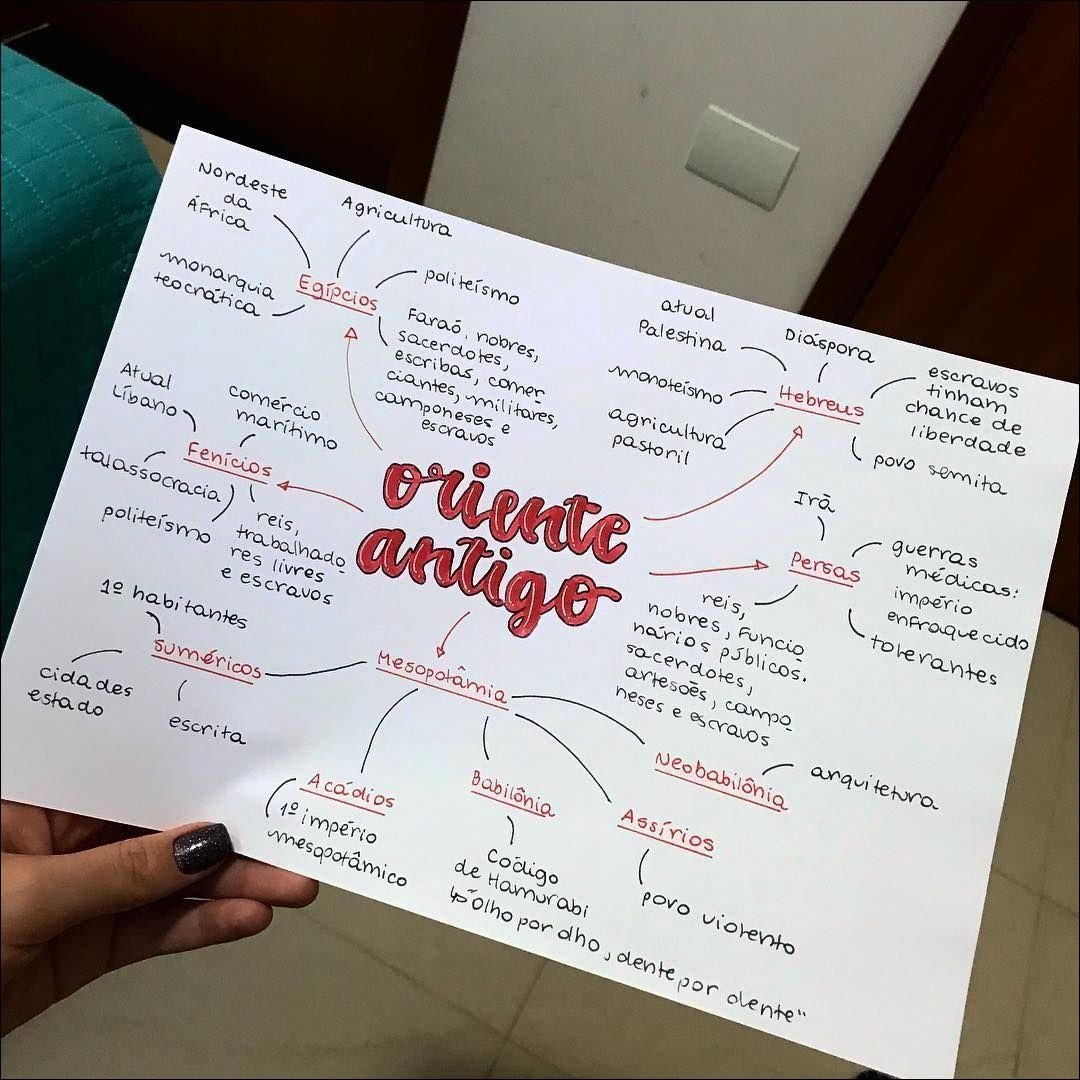 oriente
antigo
Egípcios
Nordeste
da
África
Agricultura
politeísmo
monarquia
teocrática
Faraó, nobres,
sacerdotes,
escribas, comer
ciantes, militares,
camponeses e
escravos
Hebreus
atual
Palestina
Diáspora
monoteísmo
agricultura
pastoril
escravos
tinham
chance de
liberdade
povo semita
Fenícios
Atual
Líbano
comércio
marítimo
talassocracia
politeísmo
reis,
trabalhado
res livres
e escravos
Persas
Irã
guerras
médicas:
império
enfraquecido
tolerantes
reis,
nobres, funcio
nários públicos.
sacerdotes,
artesoẽs, campo
neses e escravos
Mesopotâmia
Suméricos
1º habitantes
cidades
estado
escrita
Acádios
1º império
mesopotâmico
Babilônia
Código
de Hamurabi
↳ "Olho por olho, dente por dente"
Assírios
povo violento
Neobabilônia
arquitetura